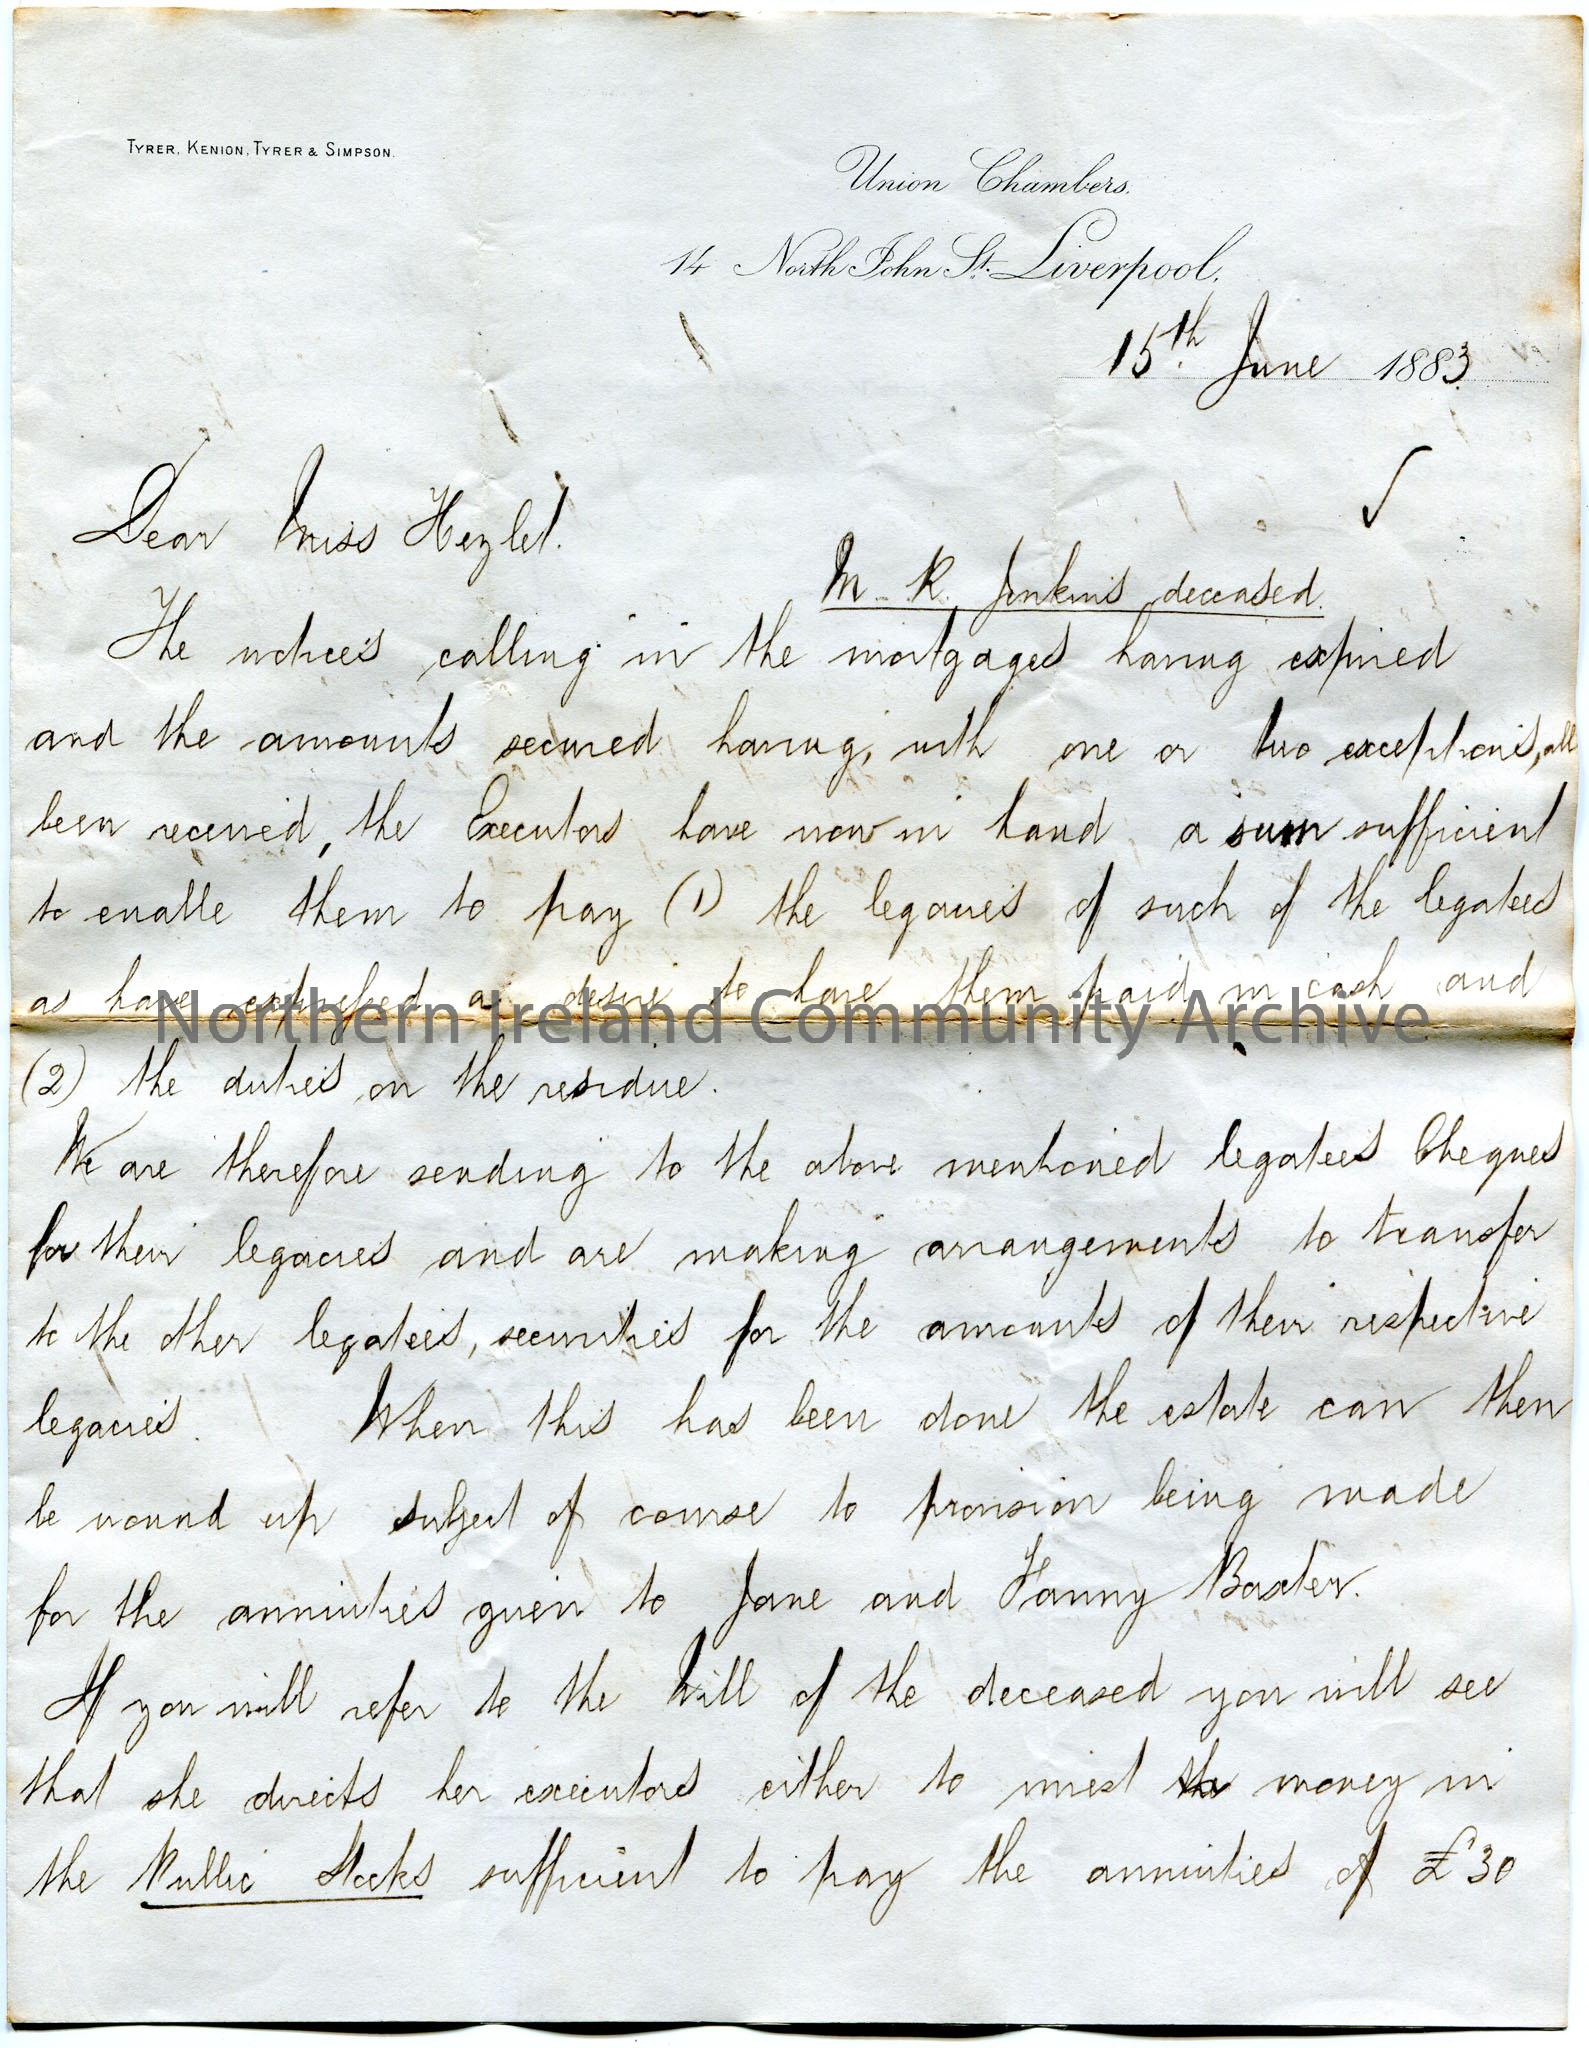 TYRER, KENION, TYRER & SIMPSON.
Union Chambers.
14 North John St. Liverpool.
15th. June 1883.
Dear Miss Hezlet.
M. R. Jenkins deceased.
The notices calling in the mortgages having expired
and the amounts secured having, with one or two exceptions, all
been received, the Executors have now in hand a sum sufficient
to enable them to pay (1) the legacies of such of the legatees
as have expressed a desire to have them paid in cash and
Northern Ireland Community Archive
(2) the duties on the residue.
We are therefore sending to the above mentioned legatees Cheques
for their legacies and are making arrangements to transfer
to the other legatees, securities for the amounts of their respective
legacies. When this has been done the estate can then
be wound up subject of course to provision being made
for the annuities given to Jane and Fanny Baxter.
If you will refer to the Will of the deceased you will see
that she directs her executors either to invest the money in
the Public Stocks sufficient to pay the annuities of £30